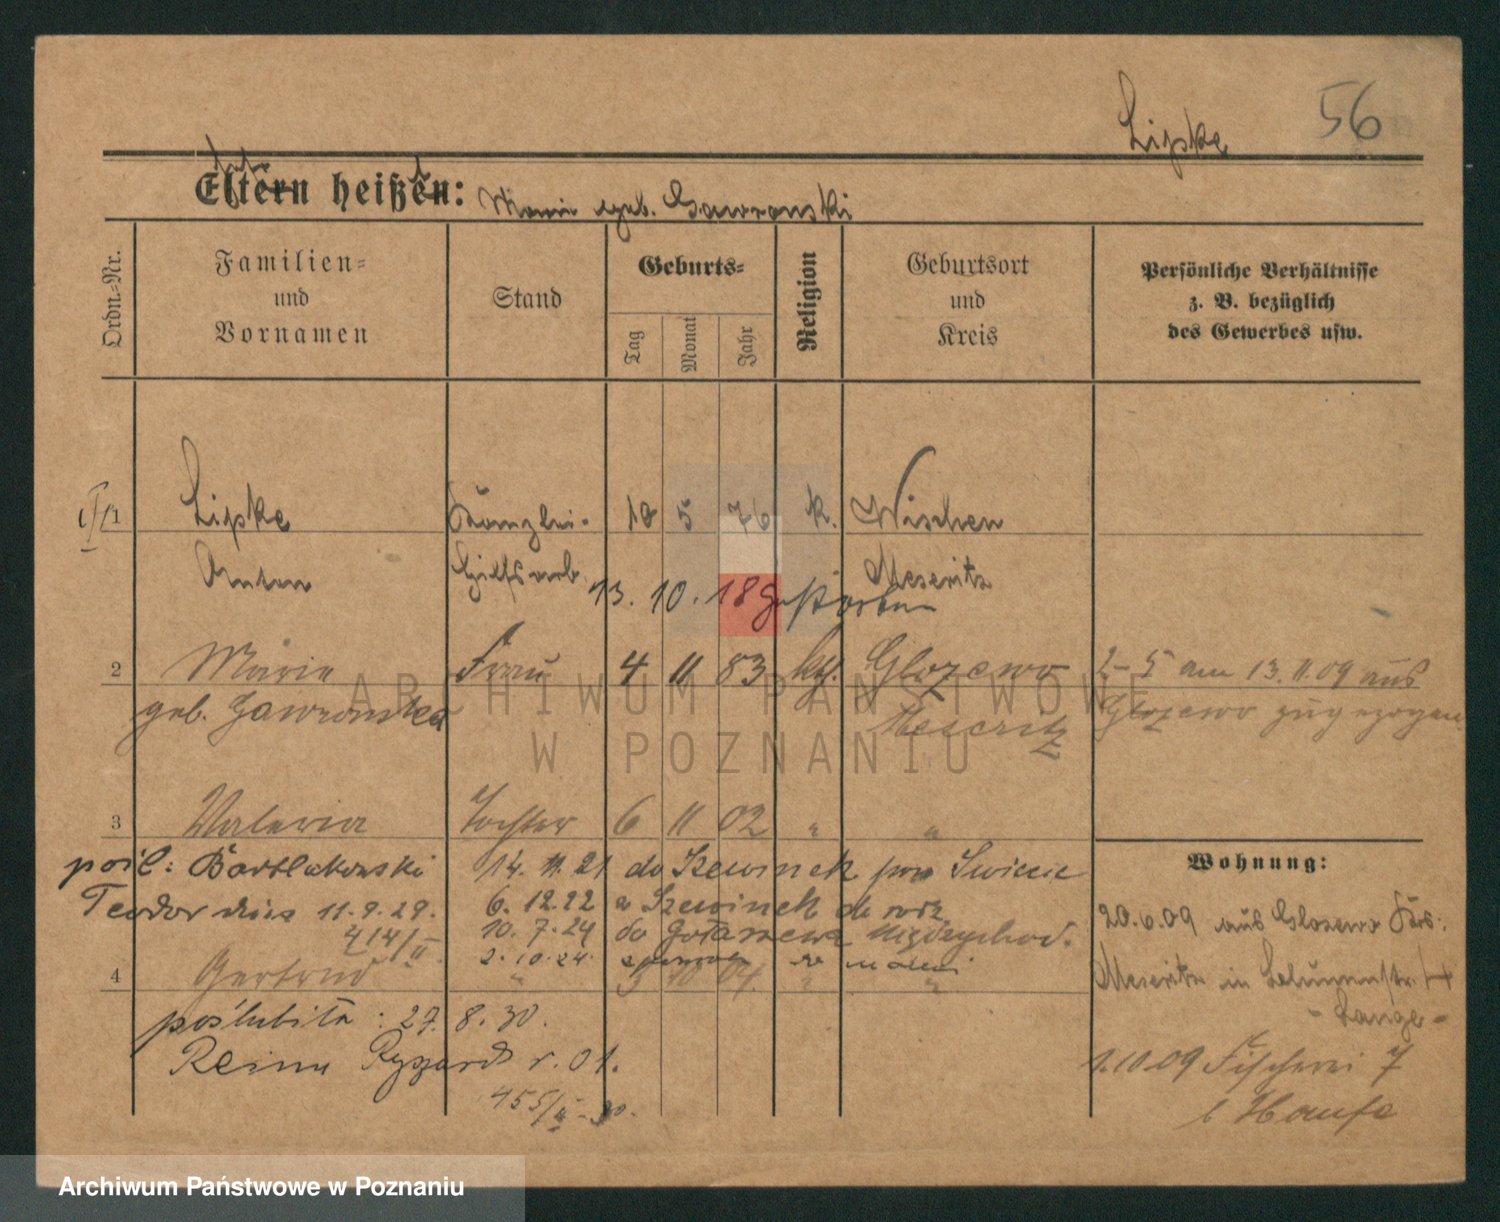 Lipke 56
Eltern heißen: Marie geb. Gawronski
Ordn.-Nr.
Familien- und Vornamen
Stand
Geburts-
Tag
Monat
Jahr
Religion
Geburtsort und Kreis
Persönliche Verhältnisse
z. B. bezüglich
des Gewerbes usw.
1 Lipke Kanzlei- 18 5 76 k. Wischen
Anton Hilfsarb. Meseritz
13. 10. 18 gestorben
2 Marie Frau 4 11 83 kth. Glozewo 2-5 am 13.11.09 aus
geb. Gawronska Meseritz Glozewo zugezogen
3 Valeria Tochter 6 11 02 " "
pośl: Bartlakowski 14. 11. 21 do Szewinek pow Świecie
Teodor dnia 11.9.29. 6. 12.22 z Szewinek do
414/II 10. 7. 24 do Gołaszewa Międzychod.
2. 10. 24.
4 Gertrud " 3 10 04. " "
poślubiła: 27. 8. 30.
Reinn Ryszard r. 01.
455/II - 30.
Wohnung:
20.6.09 aus Glosewo Krs.
Meseritz in
- Lange -
1.10.09 Fischerei 7
b Haufe
ARCHIWUM PAŃSTWOWE
W POZNANIU
Archiwum Państwowe w Poznaniu